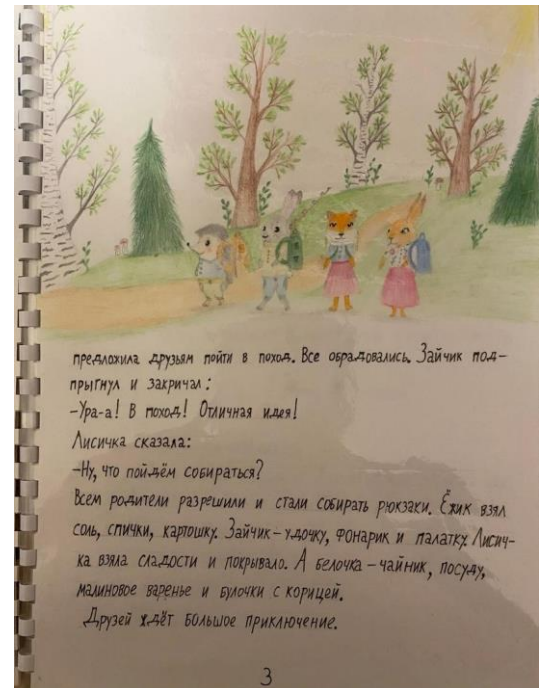 предложила друзьям пойти в поход. Все обрадовались. Зайчик под-
прыгнул и закричал:
-Ура-а! В поход! Отличная идея!
Лисичка сказала:
-Ну, что пойдём собираться?
Всем родители разрешили и стали собирать рюкзаки. Ёжик взял
соль, спички, картошку. Зайчик - удочку, фонарик и палатку. Лисич-
ка взяла сладости и покрывало. А белочка - чайник, посуду,
малиновое варенье и булочки с корицей.
Друзей ждёт большое приключение.
3